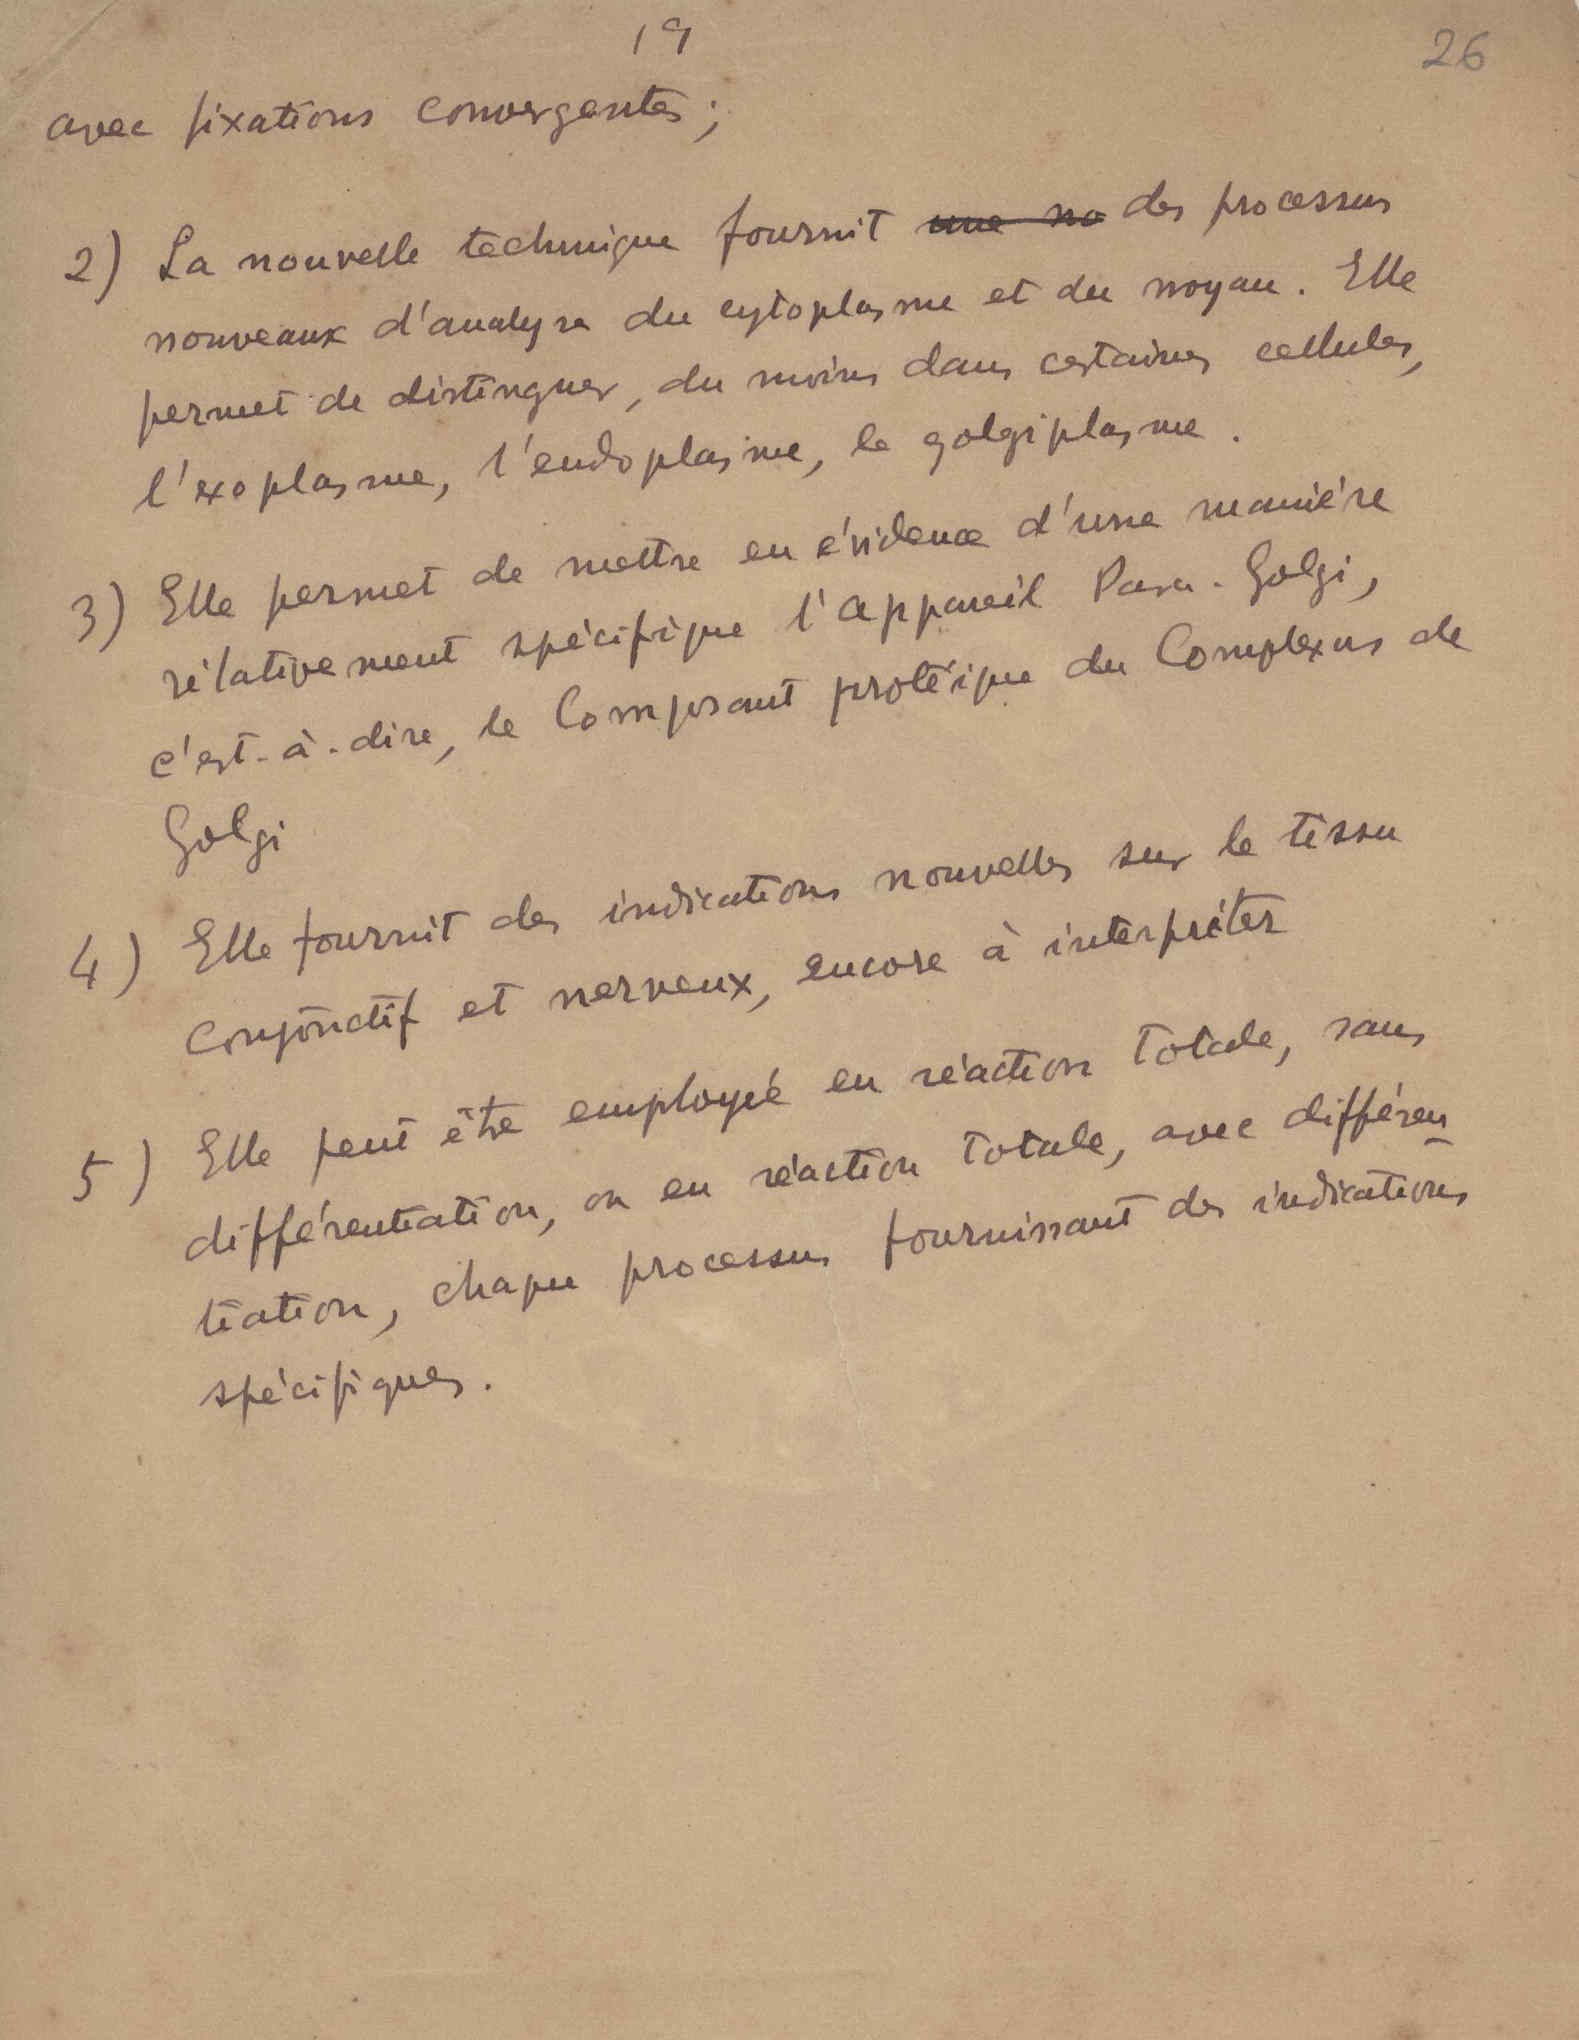 19
26
avec fixations convergentes;
2) La nouvelle technique fournit une no des processus
nouveaux d'analyse du cytoplasme et du noyau. Elle
permet de distinguer, du moins dans certaines cellules,
l'exoplasme, l'endoplasme, le golgiplasme.
3) Elle permet de mettre en évidence d'une manière
rélativement spécifique l'appareil Para-Golgi,
c'est-à-dire, le Composant protéique du Complexus de
Golgi
4) Elle fournit des indications nouvelles sur le tissu
conjonctif et nerveux, encore à interpréter
5) Elle peut être employé en réaction totale, sans
différentiation, ou en réaction totale, avec différen
tiation, chaque processus fournissant des indications
spécifiques.